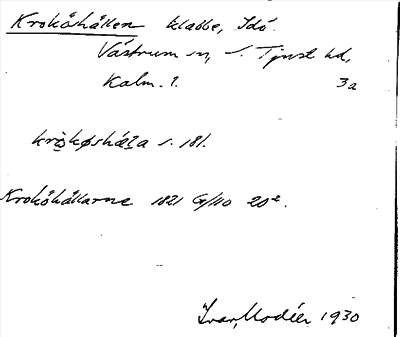 Kroköhällen klabbe, Idö.
Västrum sn, S. Tjust hd,
Kalm. l. 3a
krò̤køshäl̤a s. 181.
Kroköhällarne 1821 G/110 20².
Ivar Modéer 1930